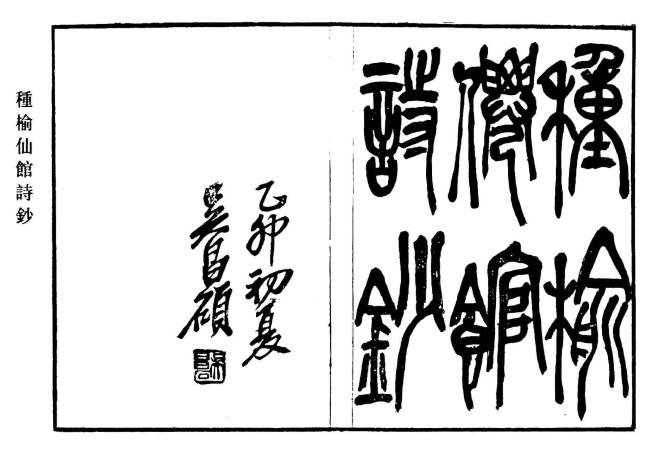 種榆
仙館
詩鈔
乙卯初夏
吳昌碩
種榆仙館詩鈔